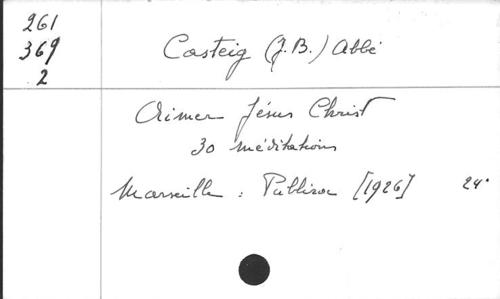 261
369
2
Casteig (J.B.) Abbé
Aimer Jésus Christ
30 méditations
Marseille : Publiroc [1926] 24°